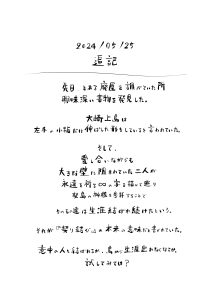 2024/05/25
追記
先日、とある廃屋を調べていた所
興味深い書物を発見した。
大崎上島は
左手の小指だけ伸ばした形をしていると言われていた。
そして
愛し合いながらも
大きな壁に阻まれていた二人が
永遠を祈る∞の字を描いて巡り
契島の神様を参拝すること
その二人は生涯結ばれ続けたという。
それが「契り結び」の本来の意味だと言われていた。
意中の人と結ばれるか、島から生涯出れなくなるか。
試してみては？